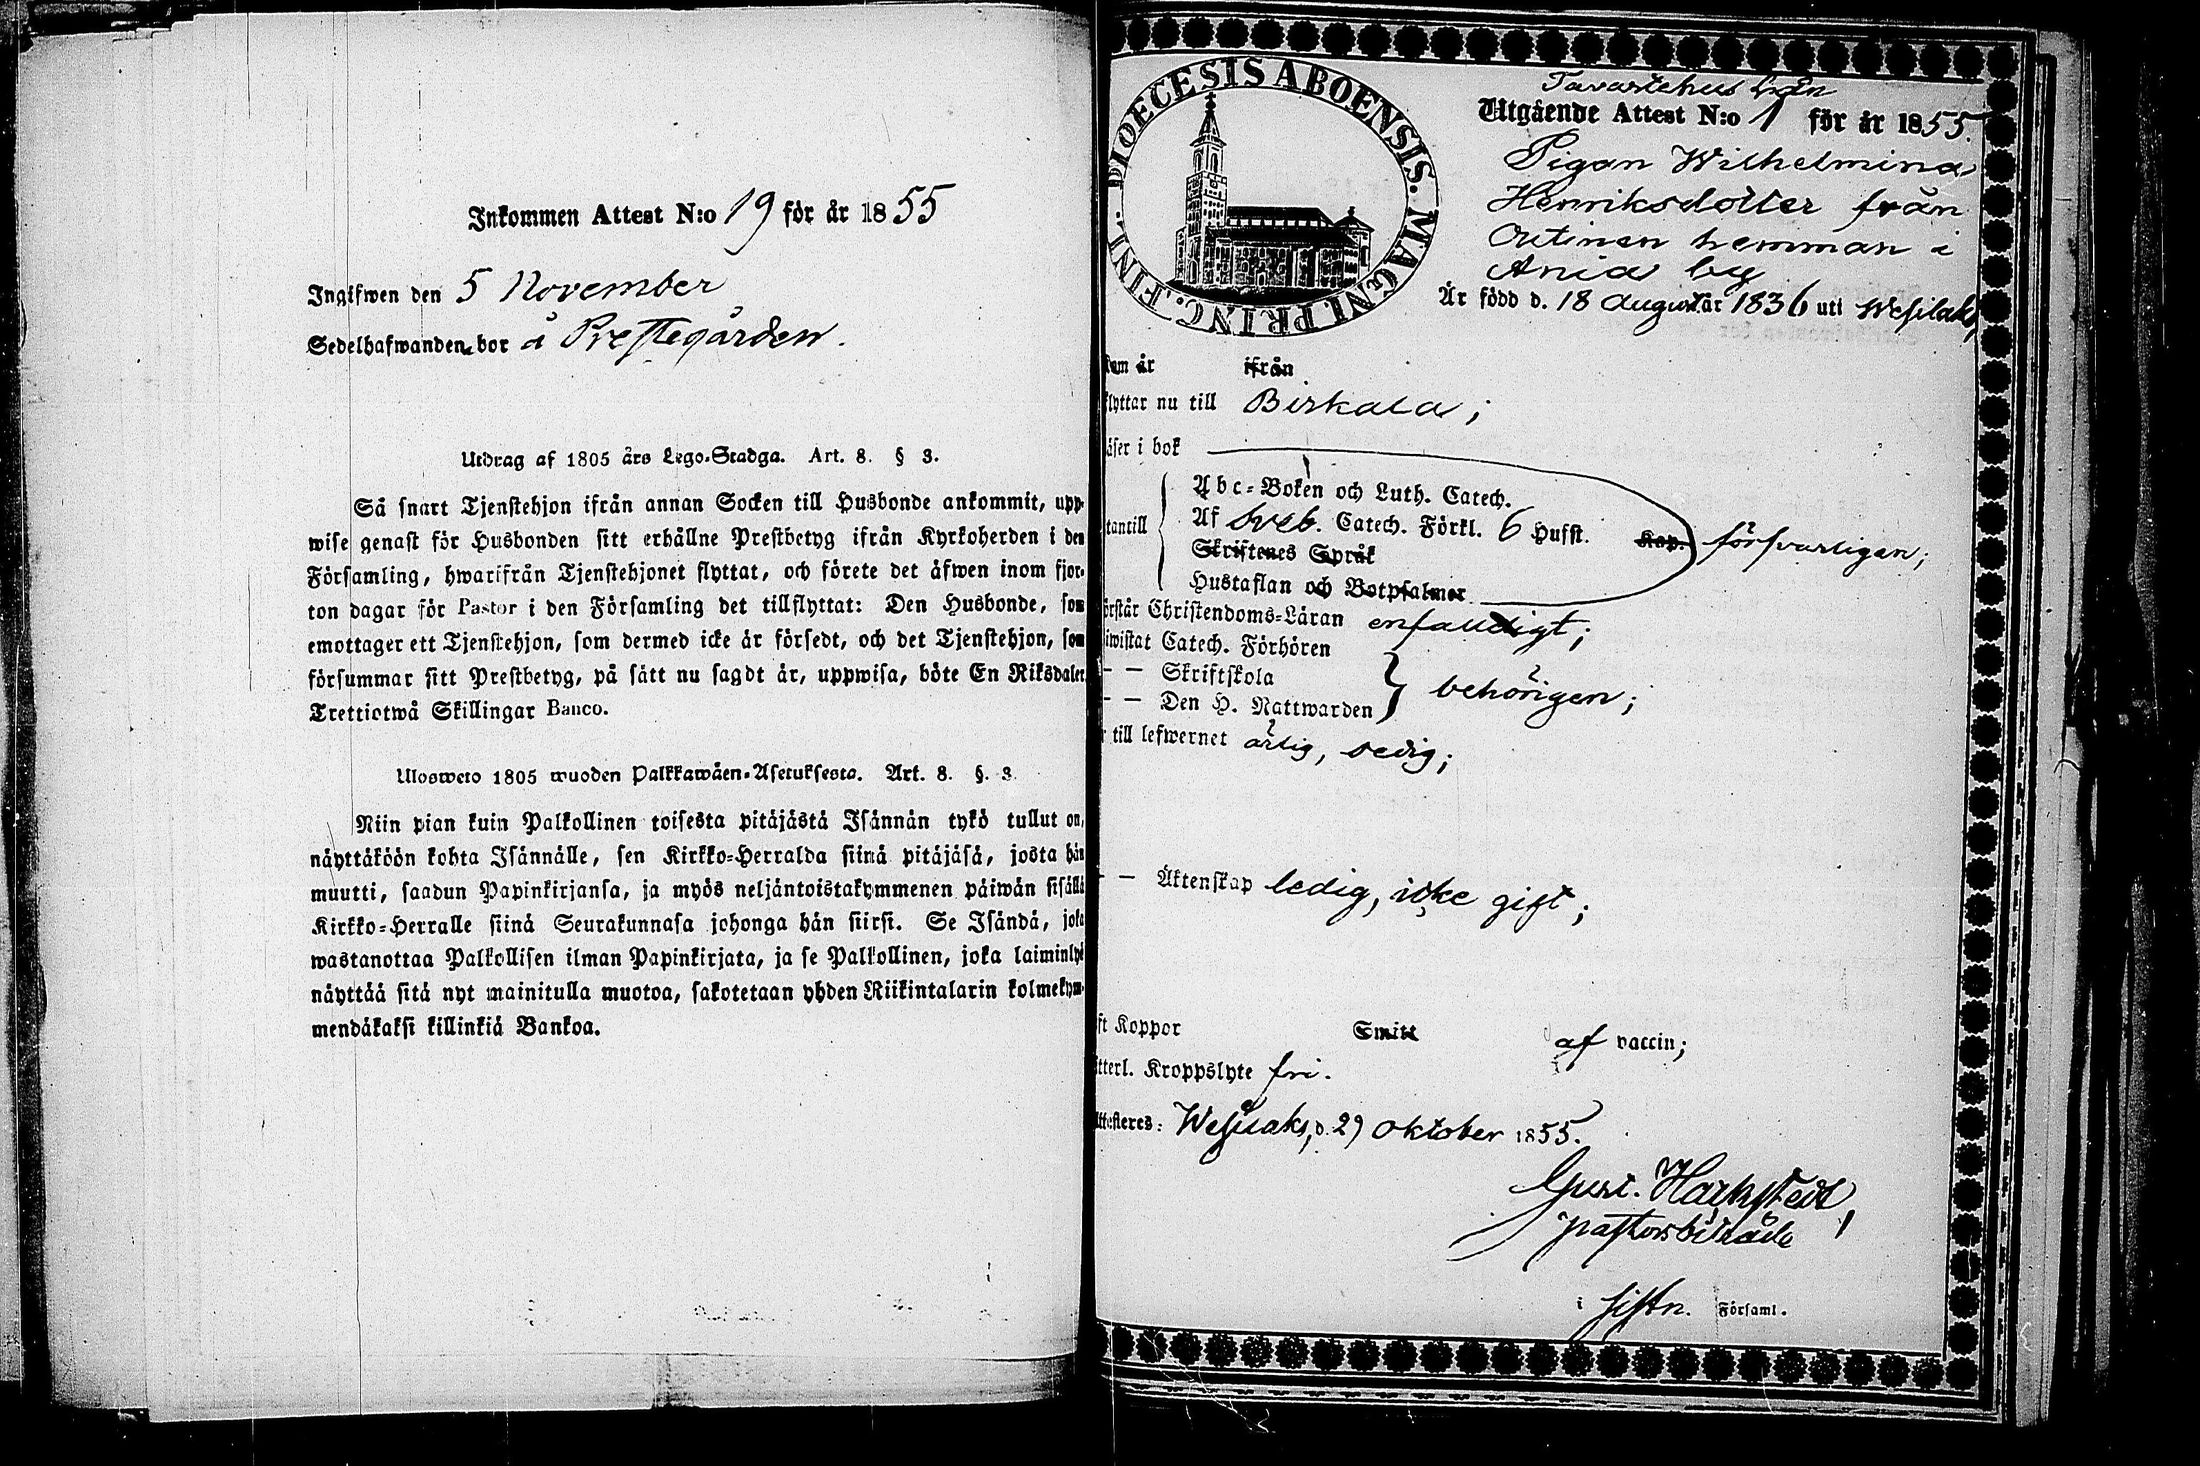 Inkommen Attest N:o 19 för år 1855
Ingifwen den 5 November
Sedelhafwanden bor å Prestegården.
Utdrag af 1805 års Lego-Stadga. Art. 8. § 3.
Så snart Tjenstehjon ifrån annan Socken till Husbonde ankommit, upp-
wise genast för Husbonden sitt erhållne Prestbetyg ifrån Kyrkoherden i den
Församling, hwarifrån Tjenstehjonet flyttat, och förete det äfwen inom fjor-
ton dagar för Pastor i den Församling det tillflyttat: Den Husbonde, som
emottager ett Tjenstehjon, som dermed icke är försedt, och det Tjenstehjon, som
försummar sitt Prestbetyg, på sätt nu sagdt är, uppwisa, böte En Riksdaler
Trettiotwå Skillingar Banco.
Uloswето 1805 wuoden Palkkawäen-Asetuksesta. Art. 8. §. 3
Niin pian kuin Palkollinen toisesta pitäjästä Isännän tykö tullut on,
näyttäköön kohta Isännälle, sen Kirkko-Herralda siinä pitäjäsä, josta hän
muutti, saadun Papinkirjansa, ja myös neljäntoistakymmenen päiwän sisällä
Kirkko-Herralle siinä Seurakunnasa johonga hän siirsi. Se Isändä, joka
wastanottaa Palkollisen ilman Papinkirjata, ja se Palkollinen, joka laiminlyö
näyttää sitä nyt mainitulla muotoa, sakotetaan yhden Riikintalarin kolmekym-
mendäkaksi killinkiä Bankoa.
DIOECESIS ABOENSIS. MAGNI PRINC. FINL.
Tavastehus Län
Utgående Attest N:o 1 för år 1855.
Pigan Wilhelmina
Henriksdotter från
Outinen hemman i
Ania by
Är född d. 18 Augusti år 1836 uti Wesilaks,
kom år ifrån
flyttar nu till Birkala;
läser i bok
Abc-Boken och Luth. Catech.
utantill Af Sveb. Catech. Förkl. 6 Hufst. Kap. försvarligen;
Skriftenes Språk
Hustaflan och Botpsalmer
förstår Christendoms-Läran enfaldigt;
biwistat Catech. Förhören
— — Skriftskola
— — Den H. Nattwarden behörigen;
är till lefwernet ärlig, sedig;
— — Äktenskap ledig, icke gift;
haft Koppor Smitt af vaccin;
ytterl. Kroppslyte fri.
Attesteres: Wesilaks, d. 29 Oktober 1855.
Gust. Hachstedt,
pastorsbiträde
i sistn. Församl.